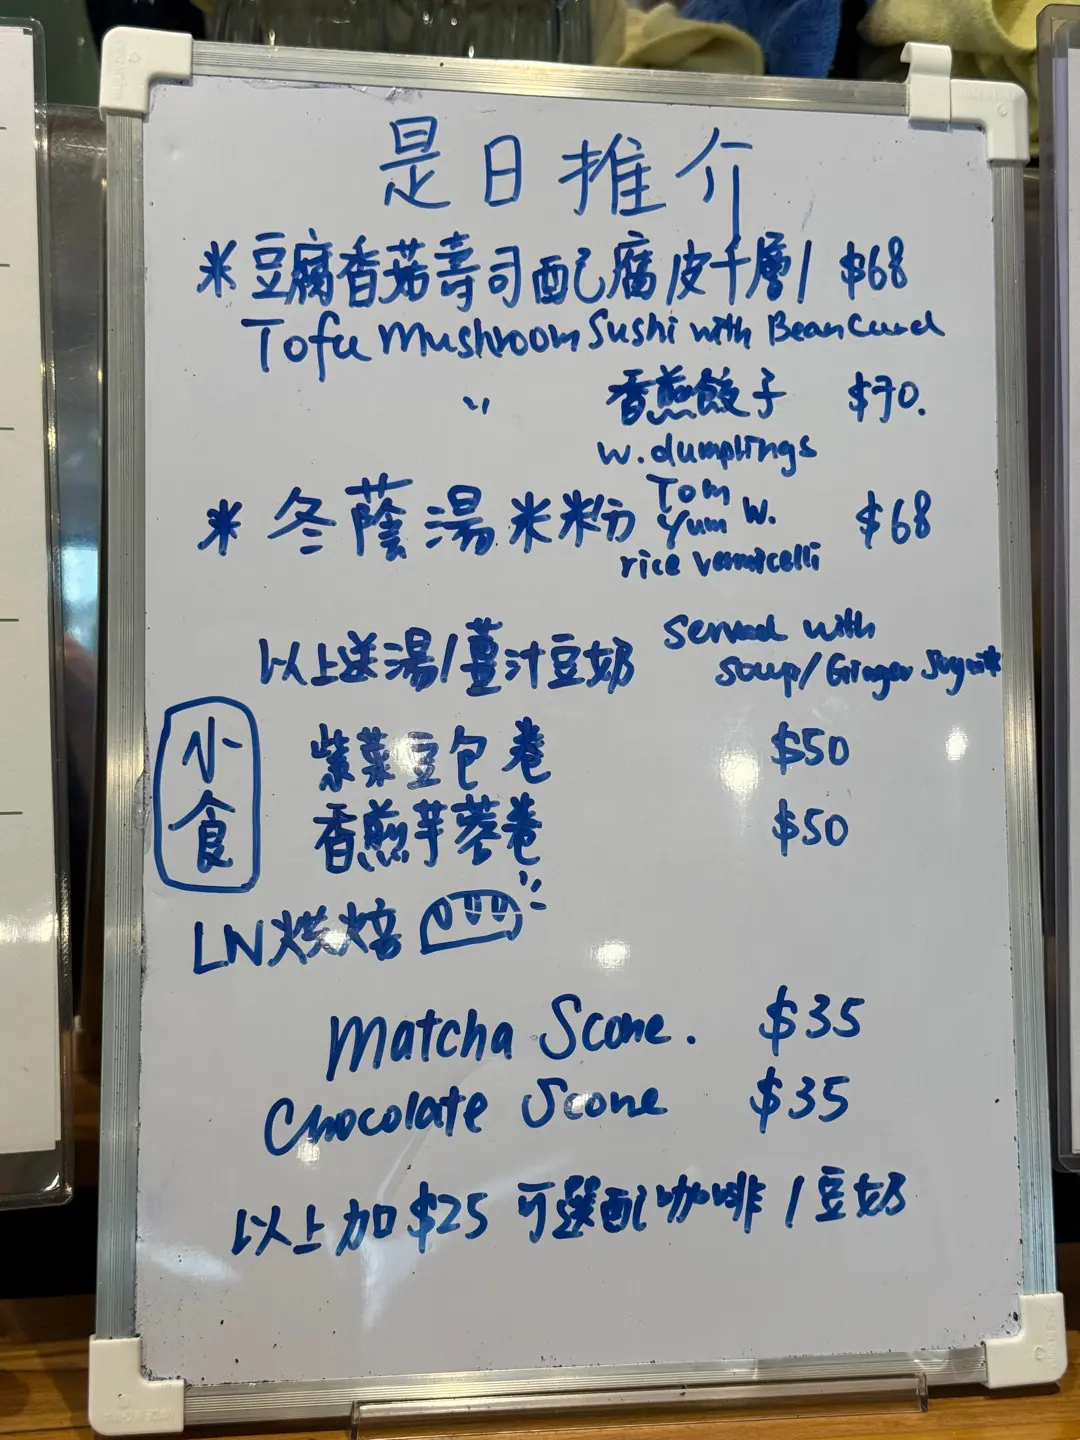 是日推介
* 豆腐香菇壽司配腐皮千層/ $68
Tofu Mushroom Sushi with Bean Curd
" 香煎餃子 $70.
w. dumplings
* 冬蔭湯米粉 Tom Yum w. rice vermicelli $68
以上送湯/薑汁豆奶 Served with
soup/Ginger Soymilk
小食
紫菜豆包卷 $50
香煎芋蓉卷 $50
LN烘焙
Matcha Scone. $35
Chocolate Scone $35
以上加$25 可選配咖啡/豆奶